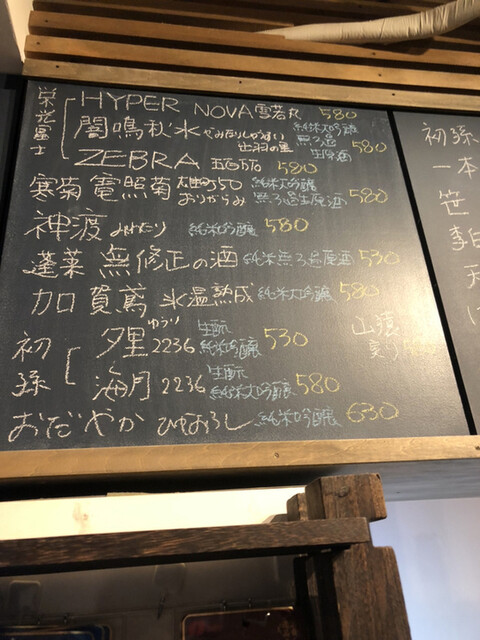 栄光冨士
HYPER NOVA 雪若丸 580
闇鳴秋水 出羽の里 純米大吟醸 無ろ過生原酒 580
ZEBRA 五百万石 580
寒菊 電照菊 おりがらみ 純米大吟醸 無ろ過生原酒 580
神渡 みわたり 純米吟醸 580
蓬莱 無修正の酒 純米無ろ過原酒 530
加賀鳶 氷温熟成 純米大吟醸 580
初孫
夕里 ゆうり 2236 生酛 純米吟醸 530
海月 2236 生酛 純米大吟醸 580
おだやか ひやおろし 純米吟醸 630
初孫
一本
笹
李白
天